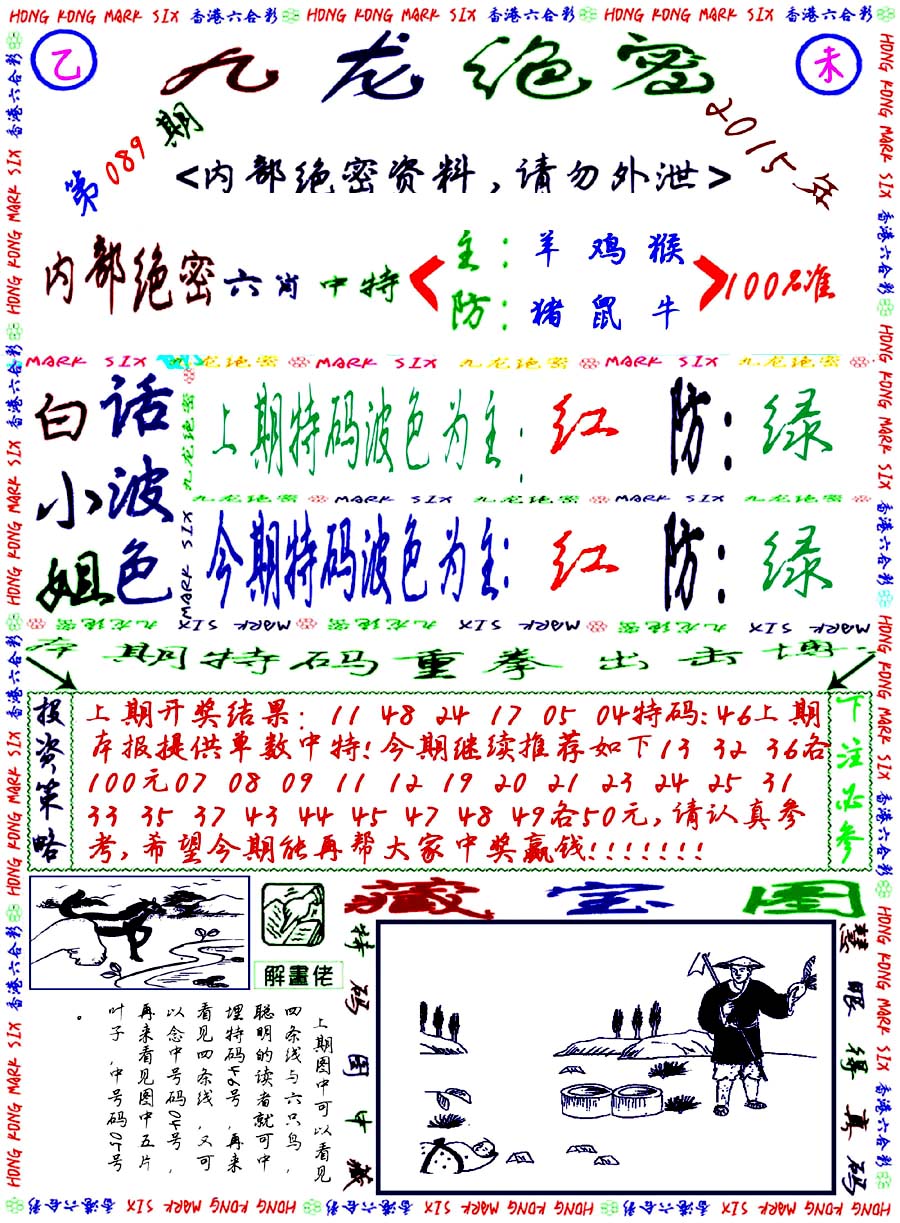 HONG KONG MARK SIX 香港六合彩 HONG KONG MARK SIX 香港六合彩 HONG KONG MARK SIX 香港六合彩
乙 九龙绝密 未
第089期 2015年
<内部绝密资料,请勿外泄>
内部绝密六肖中特
主:羊 鸡 猴
防:猪 鼠 牛
100%准
MARK SIX 九龙绝密 MARK SIX 九龙绝密 MARK SIX 九龙绝密
白话小波姐色
上期特码波色为主:红 防:绿
九龙绝密 MARK SIX 九龙绝密 MARK SIX 九龙绝密
今期特码波色为主:红 防:绿
MARK SIX 九龙绝密 MARK SIX 九龙绝密 MARK SIX 九龙绝密
本期特码重拳出击博
投资策略
上期开奖结果: 11 48 24 17 05 04特码:46上期
本报提供单数中特!今期继续推荐如下13 32 36各
100元07 08 09 11 12 19 20 21 23 24 25 31
33 35 37 43 44 45 47 48 49各50元,请认真参
考,希望今期能再帮大家中奖赢钱!!!!!!!
下注必参
藏宝图
解畫佬
特码图中藏
慧眼得真码
上期图中可以看见
四条线与六只鸟,
聪明的读者就可中
埋特码46号,再来
看见四条线,又可
以念中号码04号,
再来看见图中五片
叶子,中号码05号
。
HONG KONG MARK SIX 香港六合彩 HONG KONG MARK SIX 香港六合彩 HONG KONG MARK SIX 香港六合彩